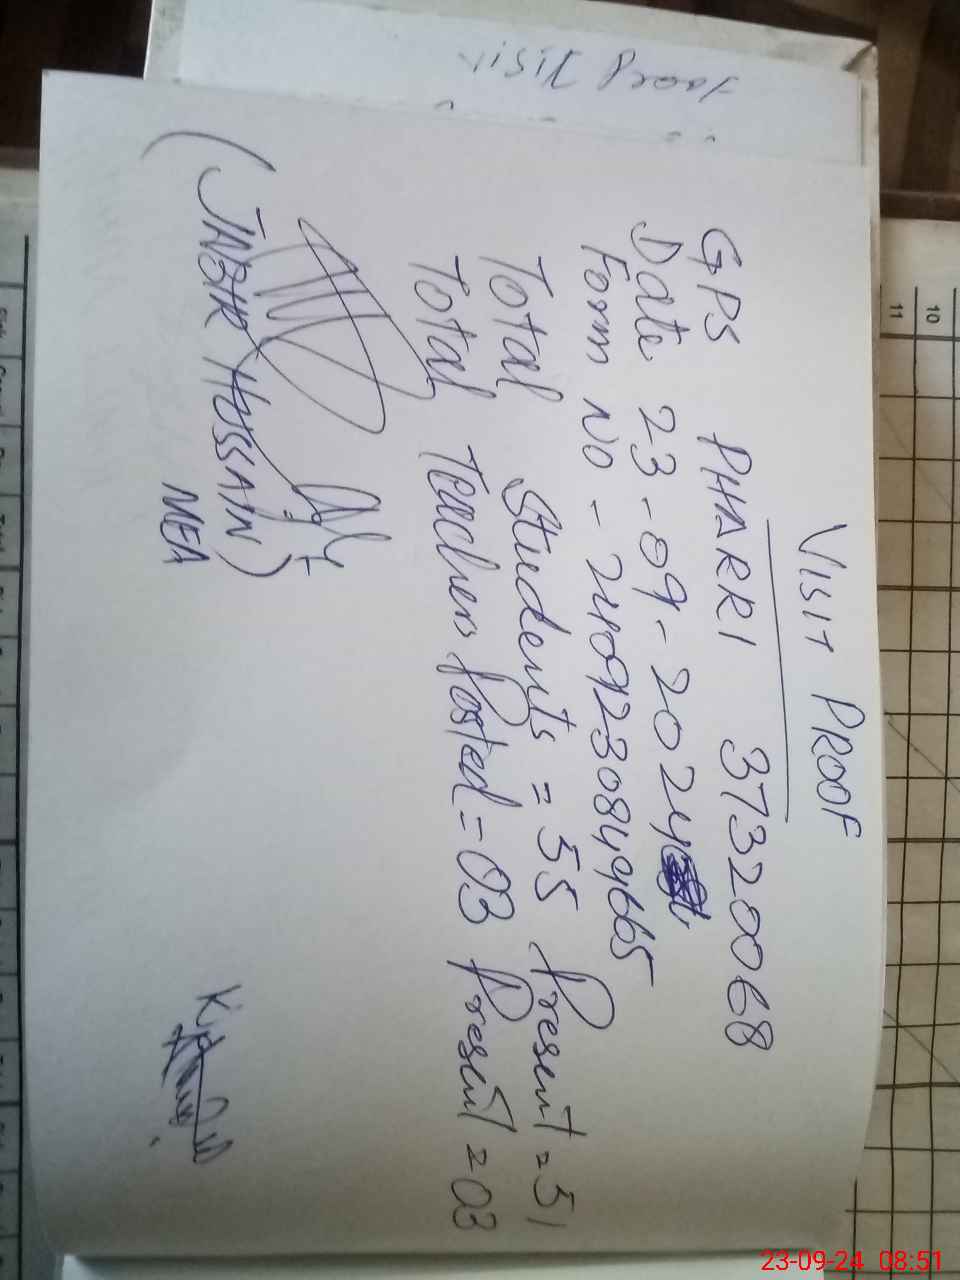 Visit Proof
VISIT PROOF
GPS PHARRI 37320068
Date 23-09-2024
Form No - 2409230849665
Total Students = 55 Present = 51
Total Teachers Posted = 03 Present = 03
(JANSHR HUSSAIN)
MEA
10
11
23-09-24 08:51